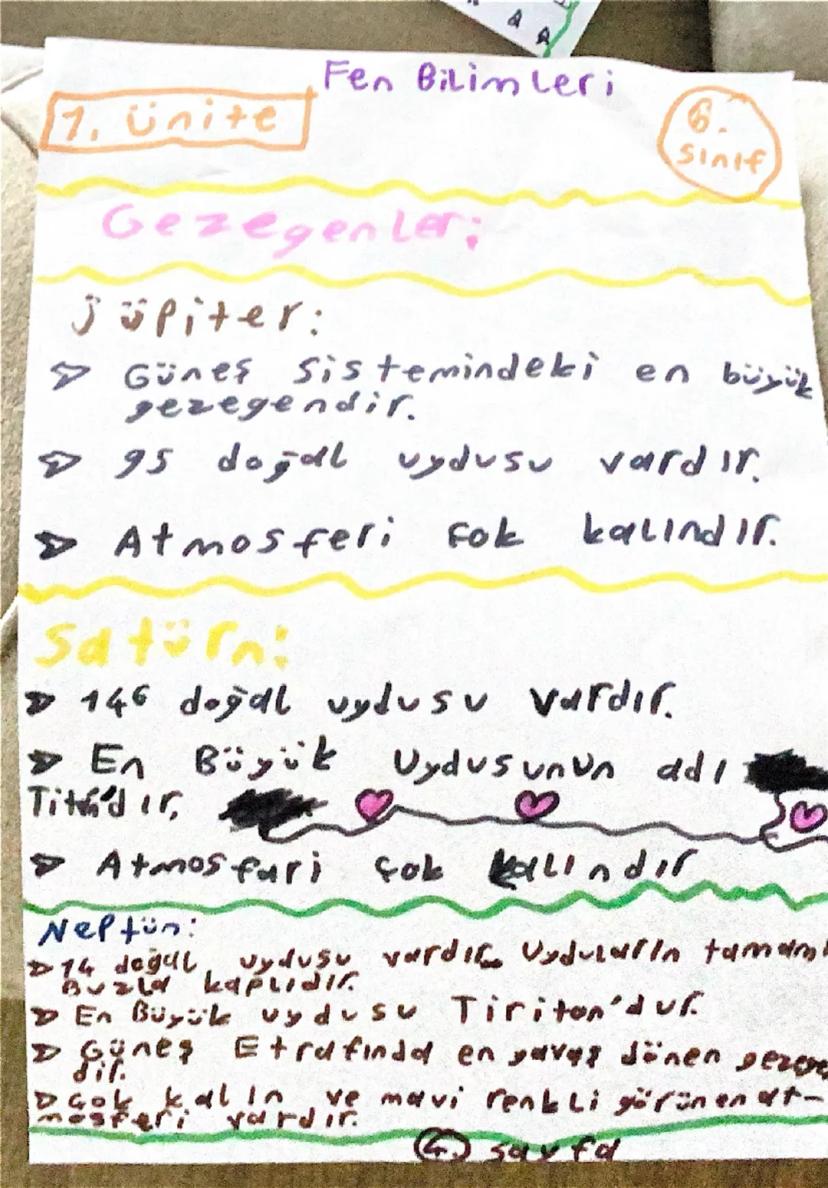 Fen Bilimleri
1. Ünite
6.
sınıf
Gezegenler;
Jüpiter:
Güneş sistemindeki en büyük
gezegendir.
95 doğal uydusu vardır.
Atmosferi çok kalındır.
Satürn:
146 doğal uydusu vardır.
En Büyük Uydusunun adı
Titan'dır.
Atmosfari çok kalındır
Neptün:
14 doğal uydusu vardır. Uyduların tamamı
Buzla kaplıdır.
En Büyük uydusu Tiriton'dur.
Güneş Etrafında en yavaş dönen gezege
dir.
Çok kalın ve mavi renkli görünen at-
mosferi vardır.
4. sayfa